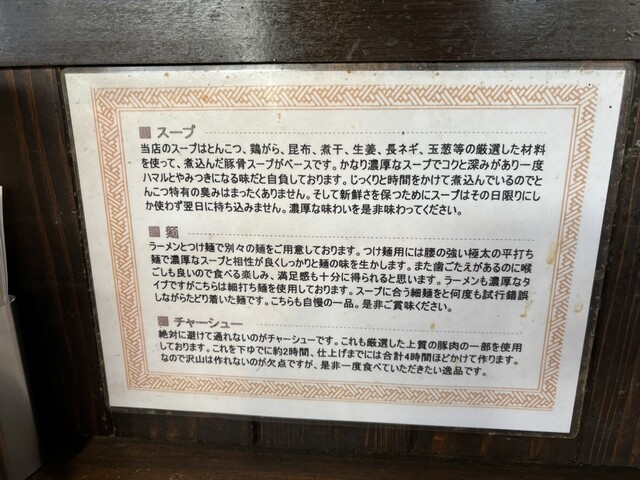 ■ スープ
当店のスープはとんこつ、鶏がら、昆布、煮干、生姜、長ネギ、玉葱等の厳選した材料
を使って、煮込んだ豚骨スープがベースです。かなり濃厚なスープでコクと深みがあり一度
ハマルとやみつきになる味だと自負しております。じっくりと時間をかけて煮込んでいるのでと
んこつ特有の臭みはまったくありません。そして新鮮さを保つためにスープはその日限りにし
か使わず翌日に持ち込みません。濃厚な味わいを是非味わってください。
■ 麺
ラーメンとつけ麺で別々の麺をご用意しております。つけ麺用には腰の強い極太の平打ち
麺で濃厚なスープと相性が良くしっかりと麺の味を生かします。また歯ごたえがあるのに喉
ごしも良いので食べる楽しみ、満足感も十分に得られると思います。ラーメンも濃厚なタ
イプですがこちらは細打ち麺を使用しております。スープに合う細麺をと何度も試行錯誤
しながらたどり着いた麺です。こちらも自慢の一品。是非ご賞味ください。
■ チャーシュー
絶対に避けて通れないのがチャーシューです。これも厳選した上質の豚肉の一部を使用
しております。これを下ゆでに約2時間、仕上げまでには合計4時間ほどかけて作ります。
なので沢山は作れないのが欠点ですが、是非一度食べていただきたい逸品です。